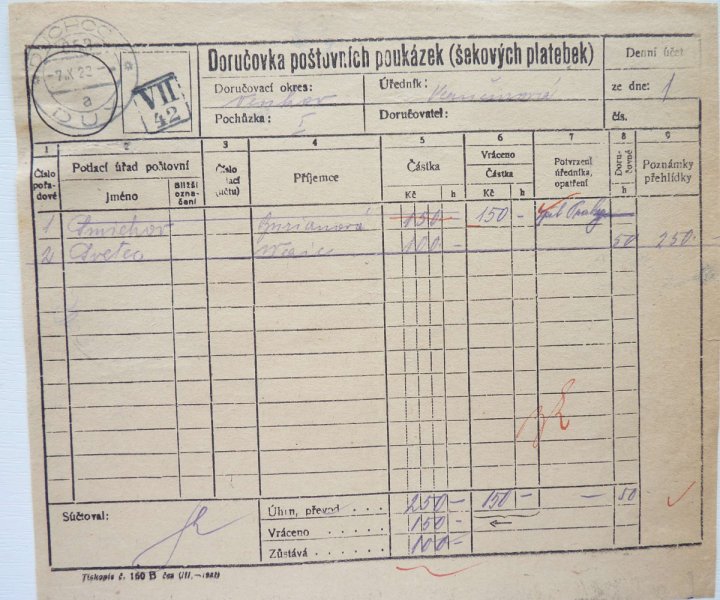 DUCHCOV
-7.X.22
a
DUX
VII
42
Doručovka poštovních poukázek (šekových platebek)
Denní účet
Doručovací okres:
Úředník:
ze dne: 1
Pochůzka: I
Doručovatel:
čís.
1 2 3 4 5 6 7 8 9
Číslo pořadové
Podací úřad poštovní
Jméno
Bližší označení
Číslo
(účtu)
Příjemce
Částka
Kč h
Vráceno
Částka
Kč h
Potvrzení úředníka, opatření
Doručovné
h
Poznámky přehlídky
1 Smichov 150 150 - zpět
2 Světec 100 - 50 250.-
Súčtoval:
Úhrn, převod . . . . 250 - 150 - - 50
Vráceno . . . . . 150 -
Zůstává . . . . . 100 -
Tiskopis č. 160 B čes